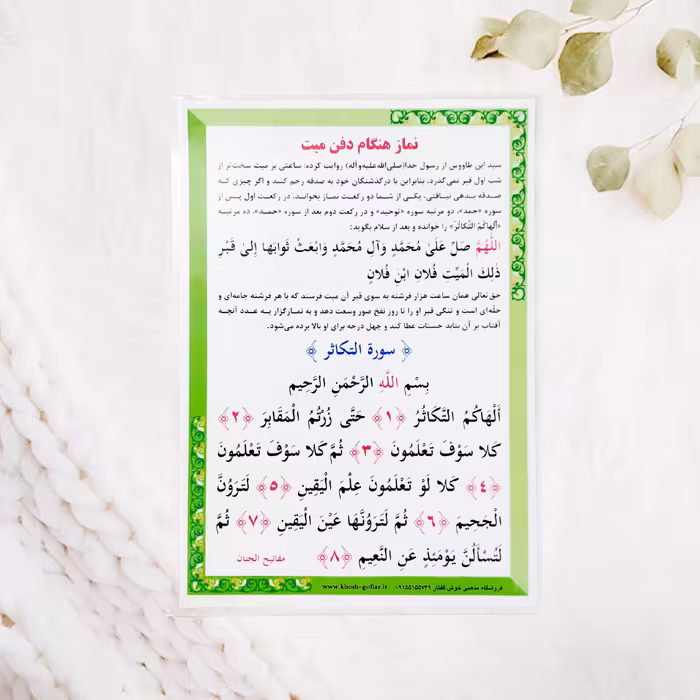 نماز هنگام دفن میت
سید ابن طاووس از رسول خدا(صلی‌الله‌علیه‌وآله) روایت کرده: ساعتی بر میت سخت‌تر از
شب اول قبر نمی گذرد، بنابراین با درگذشتگان خود به صدقه رحم کنید و اگر چیزی که
صدقه بدهی نیافتی، یکی از شما دو رکعت نماز بخواند، در رکعت اول پس از
سوره «حمد»، دو مرتبه سوره «توحید» و در رکعت دوم بعد از سوره «حمد»، ده مرتبه
«اَلْهاکُمُ التَّکاثُرُ» را خوانده و بعد از سلام بگوید:
اَللّهُمَّ صَلِّ عَلیٰ مُحَمَّدٍ وَآلِ مُحَمَّدٍ وَابْعَثْ ثَوابَها إِلیٰ قَبْرِ
ذٰلِكَ الْمَیِّتِ فُلانِ ابْنِ فُلانٍ
حق تعالی همان ساعت هزار فرشته به سوی قبر آن میت فرستد که با هر فرشته جامه‌ای و
حلّه‌ای است و تنگی قبر او را تا روز نفخ صور وسعت دهد و به نمازگزار به عدد آنچه
آفتاب بر آن بتابد حسنات عطا کند و چهل درجه برای او بالا برده می‌شود.
﴿ سورة التکاثر ﴾
بِسْمِ اللَّهِ الرَّحْمَنِ الرَّحِیم
أَلْهَاکُمُ التَّکَاثُرُ ﴿۱﴾ حَتَّى زُرْتُمُ الْمَقَابِرَ ﴿۲﴾
کَلا سَوْفَ تَعْلَمُونَ ﴿۳﴾ ثُمَّ کَلا سَوْفَ تَعْلَمُونَ
﴿۴﴾ کَلا لَوْ تَعْلَمُونَ عِلْمَ الْیَقِینِ ﴿۵﴾ لَتَرَوُنَّ
الْجَحِیمَ ﴿۶﴾ ثُمَّ لَتَرَوُنَّهَا عَیْنَ الْیَقِینِ ﴿۷﴾ ثُمَّ
لَتُسْأَلُنَّ یَوْمَئِذٍ عَنِ النَّعِیمِ ﴿۸﴾ مفاتیح الجنان
فروشگاه مذهبی خوش گفتار ۰۹۱۵۵۱۵۵۷۳۹ www.khosh-goftar.ir